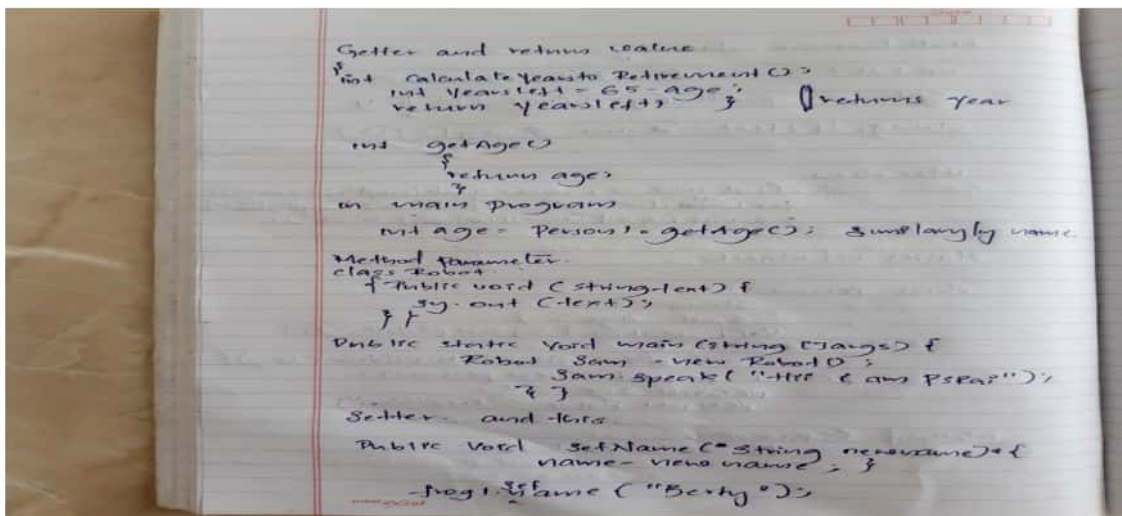 Getter and returns value
{
int calculateYearsto Retirement();
int yearsleft = 65-age;
return yearsleft; } returns year
int getAge()
{
return age;
}
in main program
int age = Person1.getAge(); similarly name
Method Parameter.
class Robot
{ Public void (string text) {
sy.out (text);
} }
Public static void main (string []args) {
Robot sam = new Robot();
sam.speak("Hi I am");
} }
Setter and this
Public void setName(String newname) {
name = newname; }
frog1.setName("Berty");